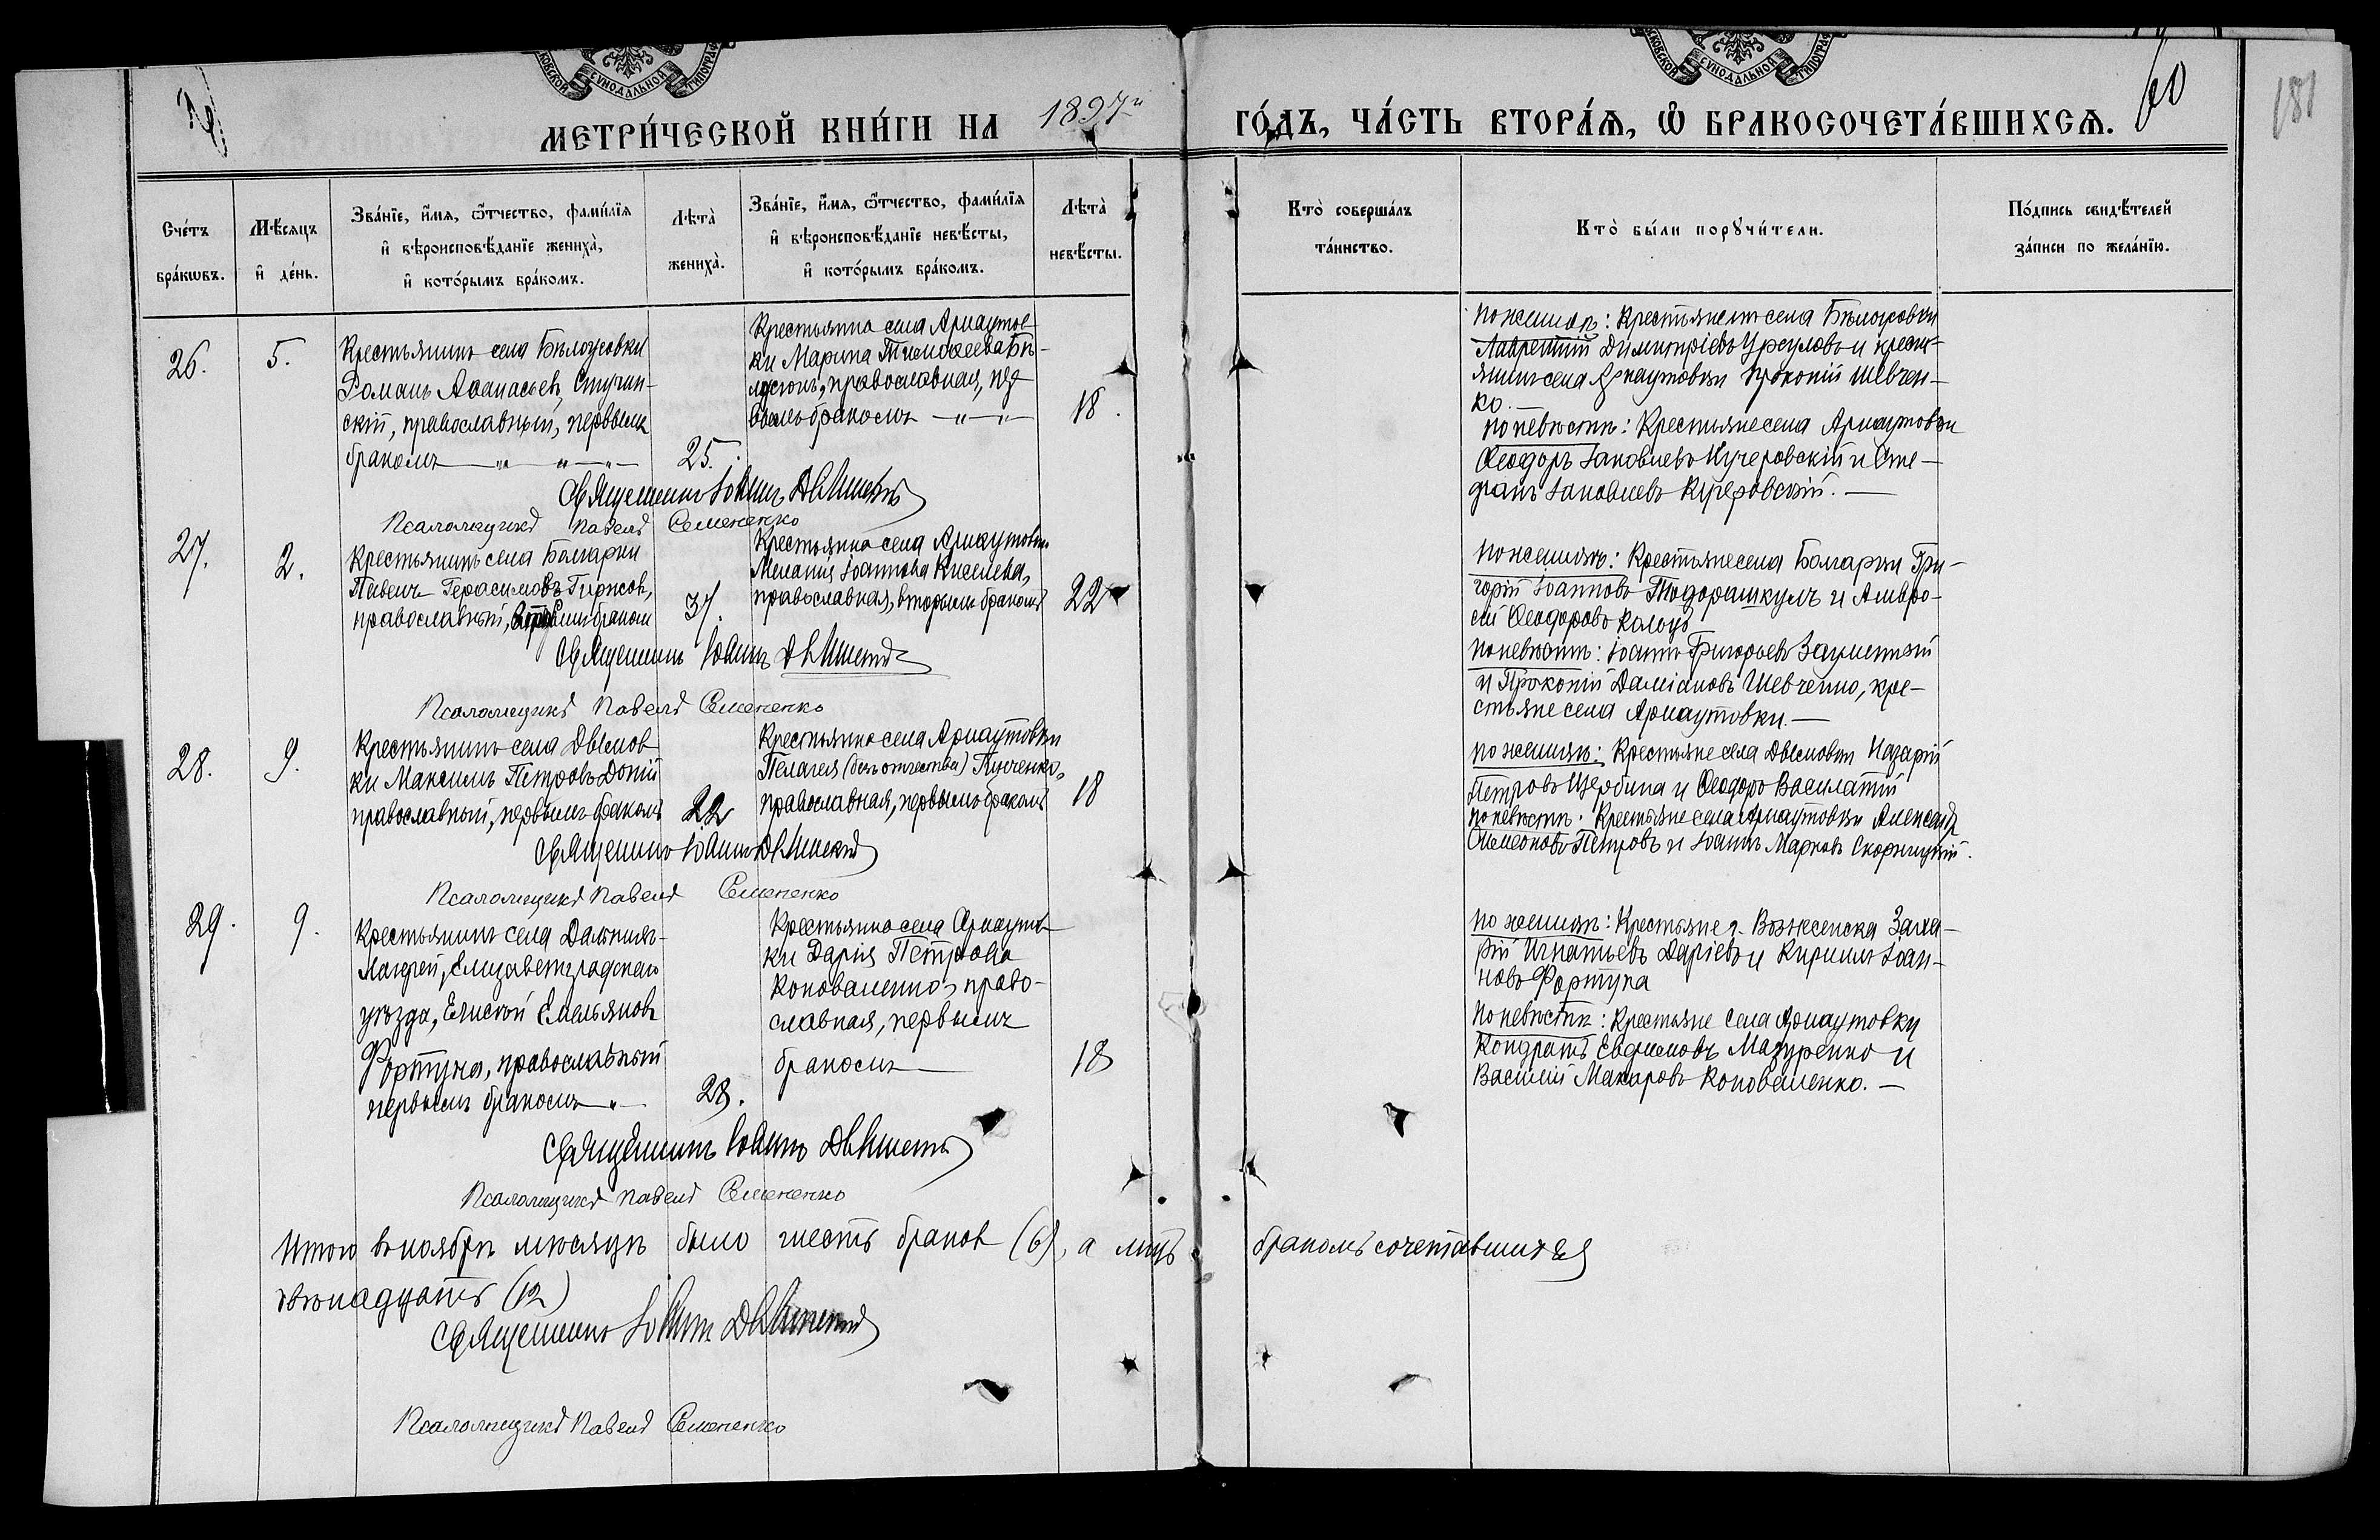 МЕТРИ́ЧЕСКОЙ КНИ́ГИ НА 1897 ГО́ДЪ, ЧА́СТЬ ВТОРА́Я, Ѿ БРАКОСОЧЕТА́ВШИХСЯ.
60
181
Сче́тъ бра́кѡвъ.
Мѣ́сяцъ и҆ де́нь.
Зва́нїе, и҆́мя, ѻ҆́тчество, фами́лїя
и҆ вѣроисповѣ́данїе жениха̀,
и҆ кото́рымъ бра́комъ.
Лѣта̀ жениха̀.
Зва́нїе, и҆́мя, ѻ҆́тчество, фами́лїя
и҆ вѣроисповѣ́данїе невѣ́сты,
и҆ кото́рымъ бра́комъ.
Лѣта̀ невѣ́сты.
Кто̀ соверша́лъ
та́инство.
Кто̀ бы́ли порꙋчи́тели.
По́дпись свидѣ́телей
за́писи по жела́нїю.
26.
5.
Крестьянинъ села Бѣлоусовки
Романъ Аѳанасьевъ
скій, православный, первымъ
бракомъ
25.
Крестьянка села Арнаутов-
ки Марина Тимоѳеева Бѣ-
православная, пер-
вымъ бракомъ
18.
По женихѣ: Крестьяне села Бѣлоусовки
Лаврентій Димитріевъ Урсуловъ и крест-
янинъ села Арнаутовки Прокопій Шевчен-
ко.
По невѣстѣ: Крестьяне села Арнаутовки
Ѳеодоръ Іаковлевъ Кучеровскій и Сте-
фанъ Іаковлевъ Кучеровскій.
Священникъ Іоаннъ
Псаломщикъ Павелъ Семененко
27.
2.
Крестьянинъ села Болгарки
Павелъ Герасимовъ
православный, вторымъ бракомъ
37.
Крестьянка села Арнаутовки
Меланія Іоаннова Киселева,
православная, вторымъ бракомъ
22
По женихѣ: Крестьяне села Болгарки Гри-
горій Іоанновъ Тодорашкулъ и Амвро-
сій Ѳеодоровъ
По невѣстѣ: Іоаннъ Григорьевъ
и Прокопій Даміановъ Шевченко, кре-
стьяне села Арнаутовки.
Священникъ Іоаннъ
Псаломщикъ Павелъ Семененко
28.
9.
Крестьянинъ села Дымов-
ки Максимъ Петровъ Доній
православный, первымъ бракомъ
22
Крестьянка села Арнаутовки
Пелагея (безъ отчества)
православная, первымъ бракомъ
18
По женихѣ: Крестьяне села Дымовки Назарій
Петровъ Щербина и Ѳеодоръ Василатій
По невѣстѣ: Крестьяне села Арнаутовки Александр
Симеоновъ Петровъ и Іоаннъ Марковъ Скорницкій.
Священникъ Іоаннъ
Псаломщикъ Павелъ Семененко
29.
9.
Крестьянинъ села
Елисаветградскаго
уѣзда, Елисей Емельяновъ
Фортуна, православный
первымъ бракомъ
28.
Крестьянка села Арнаутов-
ки Дарія Петрова
Коноваленко, право-
славная, первымъ
бракомъ
18
По женихѣ: Крестьяне г. Вознесенска Заха-
рій Игнатьевъ Даріевъ и Кириллъ Іоан-
новъ Фортуна
По невѣстѣ: Крестьяне села Арнаутовки
Кондратъ Евфимовъ Мазуренко и
Василій Макаровъ Коноваленко.
Священникъ Іоаннъ
Псаломщикъ Павелъ Семененко
Итого въ ноябрѣ мѣсяцѣ было шесть браков (6), а лицъ бракомъ сочетавшихся
двѣнадцать (12)
Священникъ Іоаннъ
Псаломщикъ Павелъ Семененко